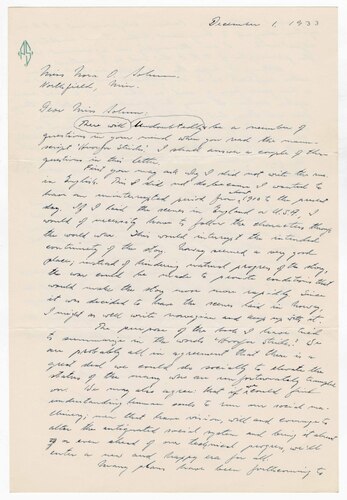 December 1, 1933
Miss Nora O. Solum.
Northfield, Minn.
Dear Miss Solum;
There will undoubtedly be a number of
questions in your mind when you read the manu-
script I shall answer a couple of these
questions in this letter.
First you may ask why I did not write the ms.
in English. This I did not do because I wanted to
have an uninterrupted period from 1900 to the present
day. If I laid the scenes in England or U.S.A. I
would of necessity have to follow the characters through
the world war. This would interrupt the intended
continuity of the story. Having served a very good
place, instead of hindering natural progress of the story,
the war could be made to promote conditions that
would make the story move more rapidly. Since
it was decided to have the scenes laid in Norway,
I might as well write norwegian and
The purpose of the book I have tried
to summarize in the words We
are probably all in agreement that there is a
great deal we could do socially to elevate the
status of the many who are unfortunately caught
We may also agree that if we could find
understanding human souls to run our social ma-
chinery, men that have vision, will and courage to
alter the antiquated social system and bring it abreast
of or even ahead of our technical progress, we'll
enter a new and happy era for all.
Many plans have been forthcoming to